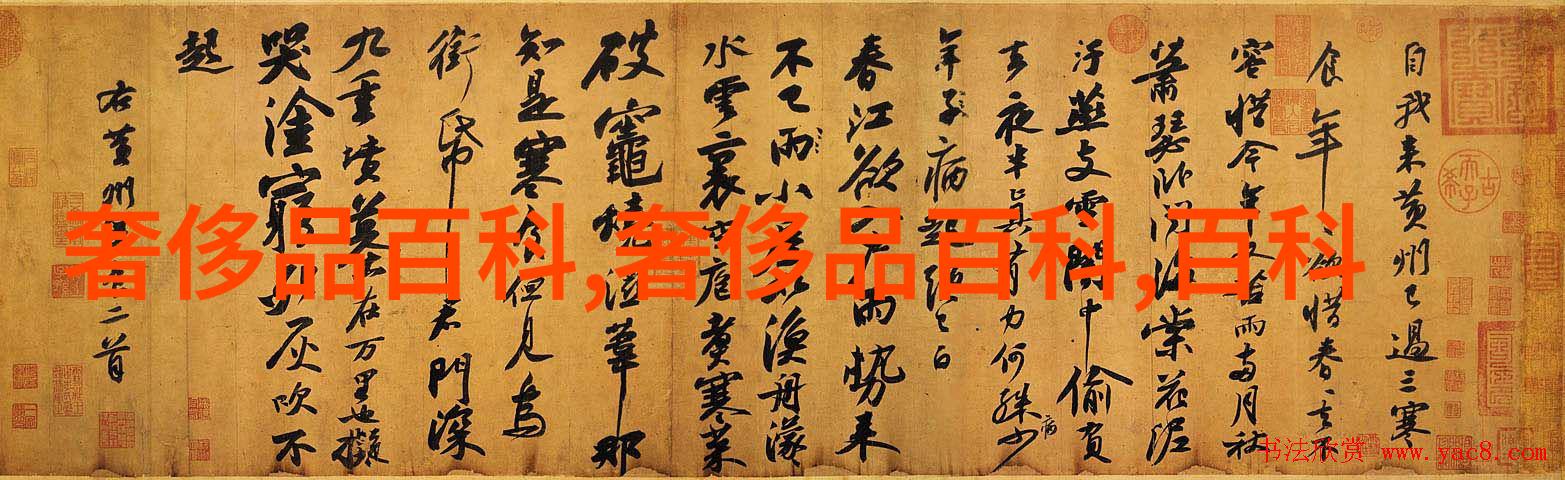 自我来黄州已過三寒
食年〻欲惜春〻去不
容惜今年又苦雨兩月秋
蕭瑟卧聞海棠花泥
汙燕支雪闇中偷負
去夜半真有力何殊少
病
年子病起頭已白
春江欲入户雨勢来
不已雨小屋如漁舟濛
水雲裏空庖煮寒菜
破竈燒濕葦那
知是寒食但見烏
銜帋君門深
九重墳墓在万里也擬
哭塗窮死灰吹不
起
右黄州寒食二首
奢侈品百科,奢侈品百科,百科
书法欣赏 www.yac8.com